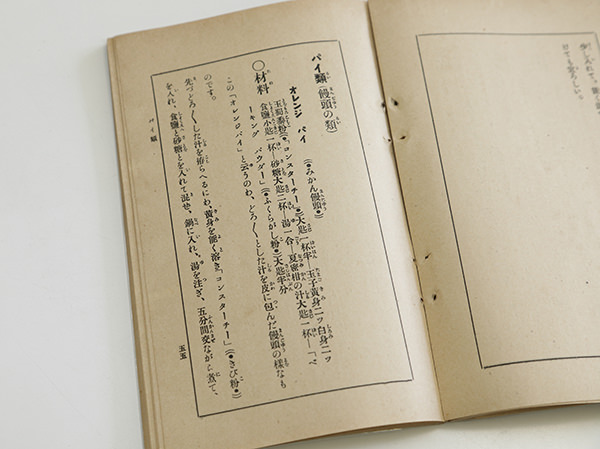 少し入れて、我く
けても宜ろしい。
パイ類(饅頭の類)
オレンジ パイ (●みかん饅頭●)
○材料 玉蜀黍粉(●「コンスターチー」●)大匙一杯半―玉子黄身二ッ白身二ッ
食鹽小匙一杯 砂糖大匙二杯 湯一合―夏蜜柑の汁大匙一杯―「ベ
ーキング パウダー」(●ふくらがし粉●)大匙半分
この「オレンジパイ」と云うのわ、どろ〳〵とした汁を皮に包んだ饅頭の様なも
のです。
先づどろ〳〵した汁を拵らへるにわ、黄身を能く溶き「コンスターチー」(●きび粉●)
を入れ、食鹽と砂糖とを入れて混せ、鍋に入れ、湯を注ぎ、五分間交ながら煮て、
パイ類
五五